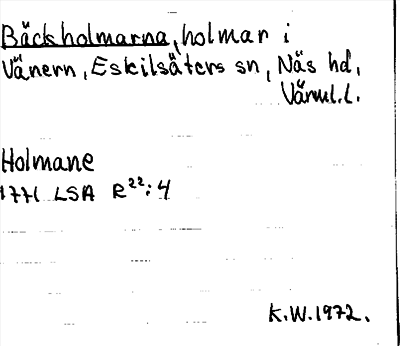 Bäckholmarna, holmar i
Vänern, Eskilsäters sn, Näs hd,
Värml.l.
Holmane
1771 LSA R²²:4
K.W.1972.